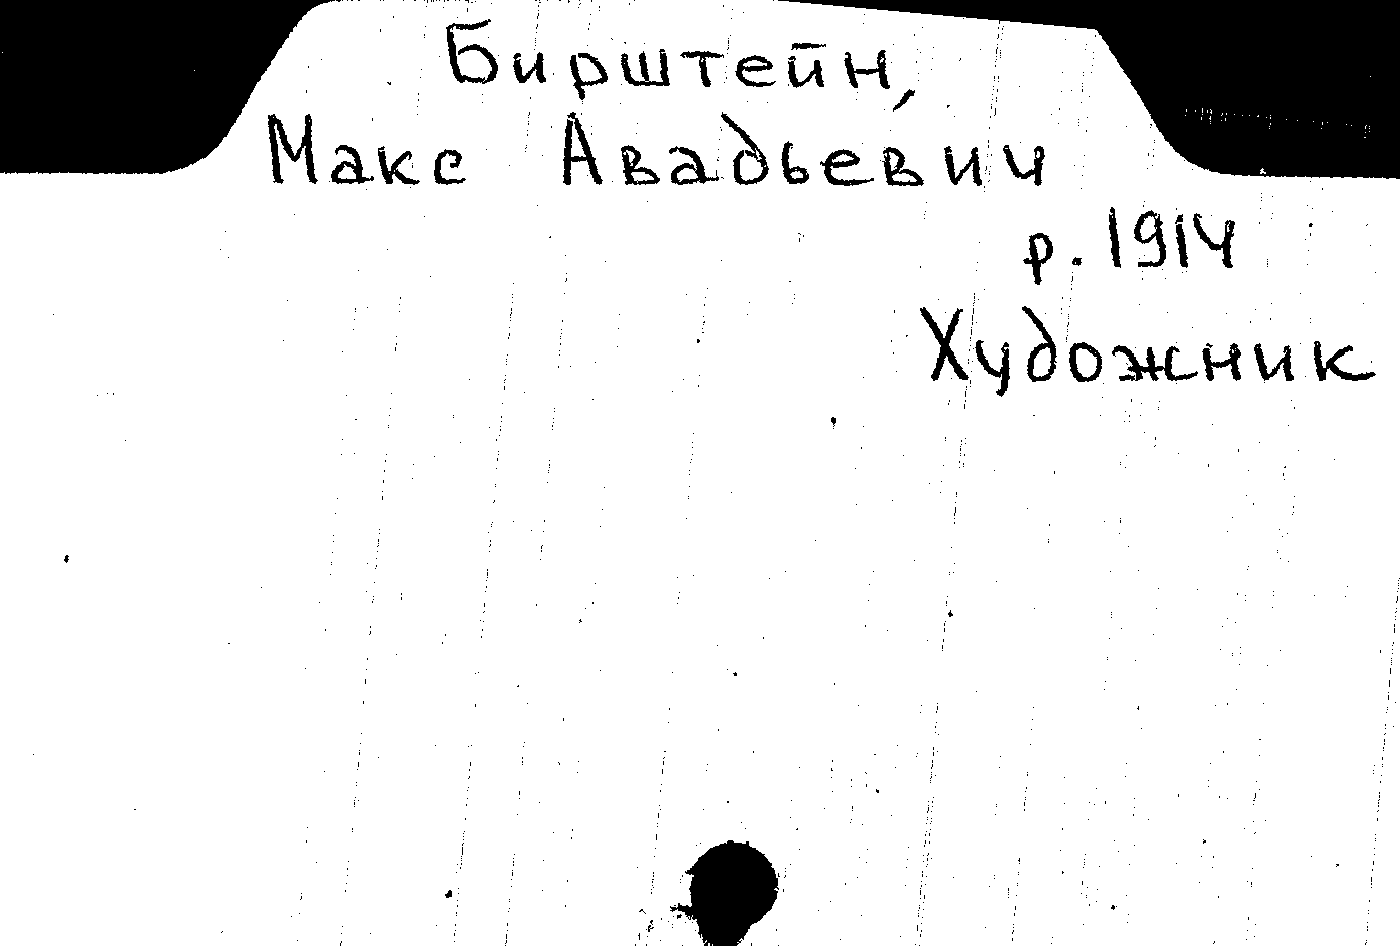 Бирштейн,
Макс Авадьевич
р. 1914
Художник